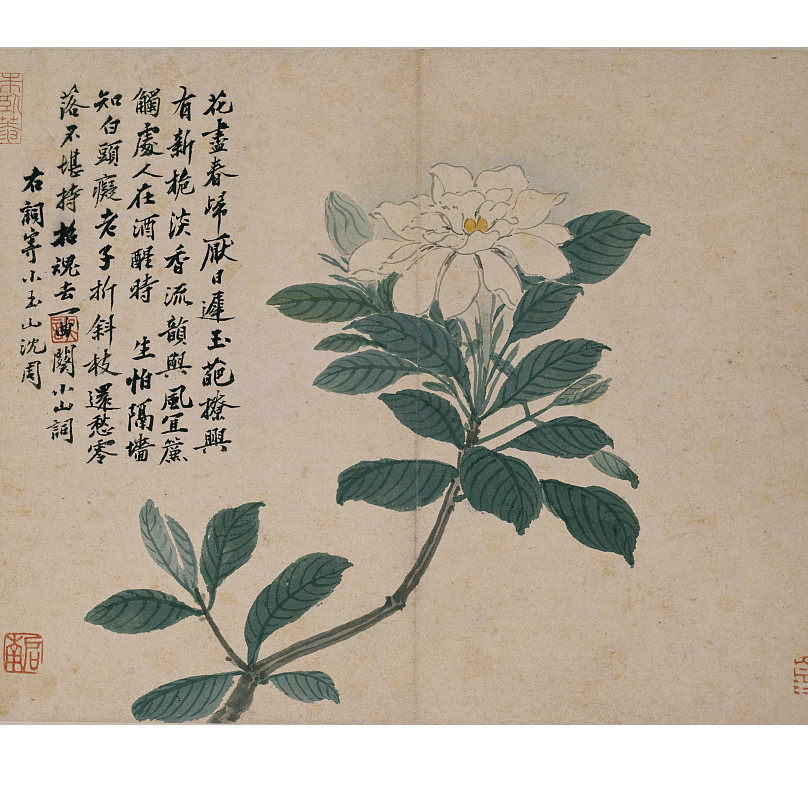 花盡春歸厭日遲玉葩撩興
有新梔淡香流韻與風宜簾
觸處人在酒醒時 生怕隔墻
知白頭癡老子折斜枝還愁零
落不堪持招魂去一曲闋小山詞
右詞寄小重山沈周
朱臥菴
啟南